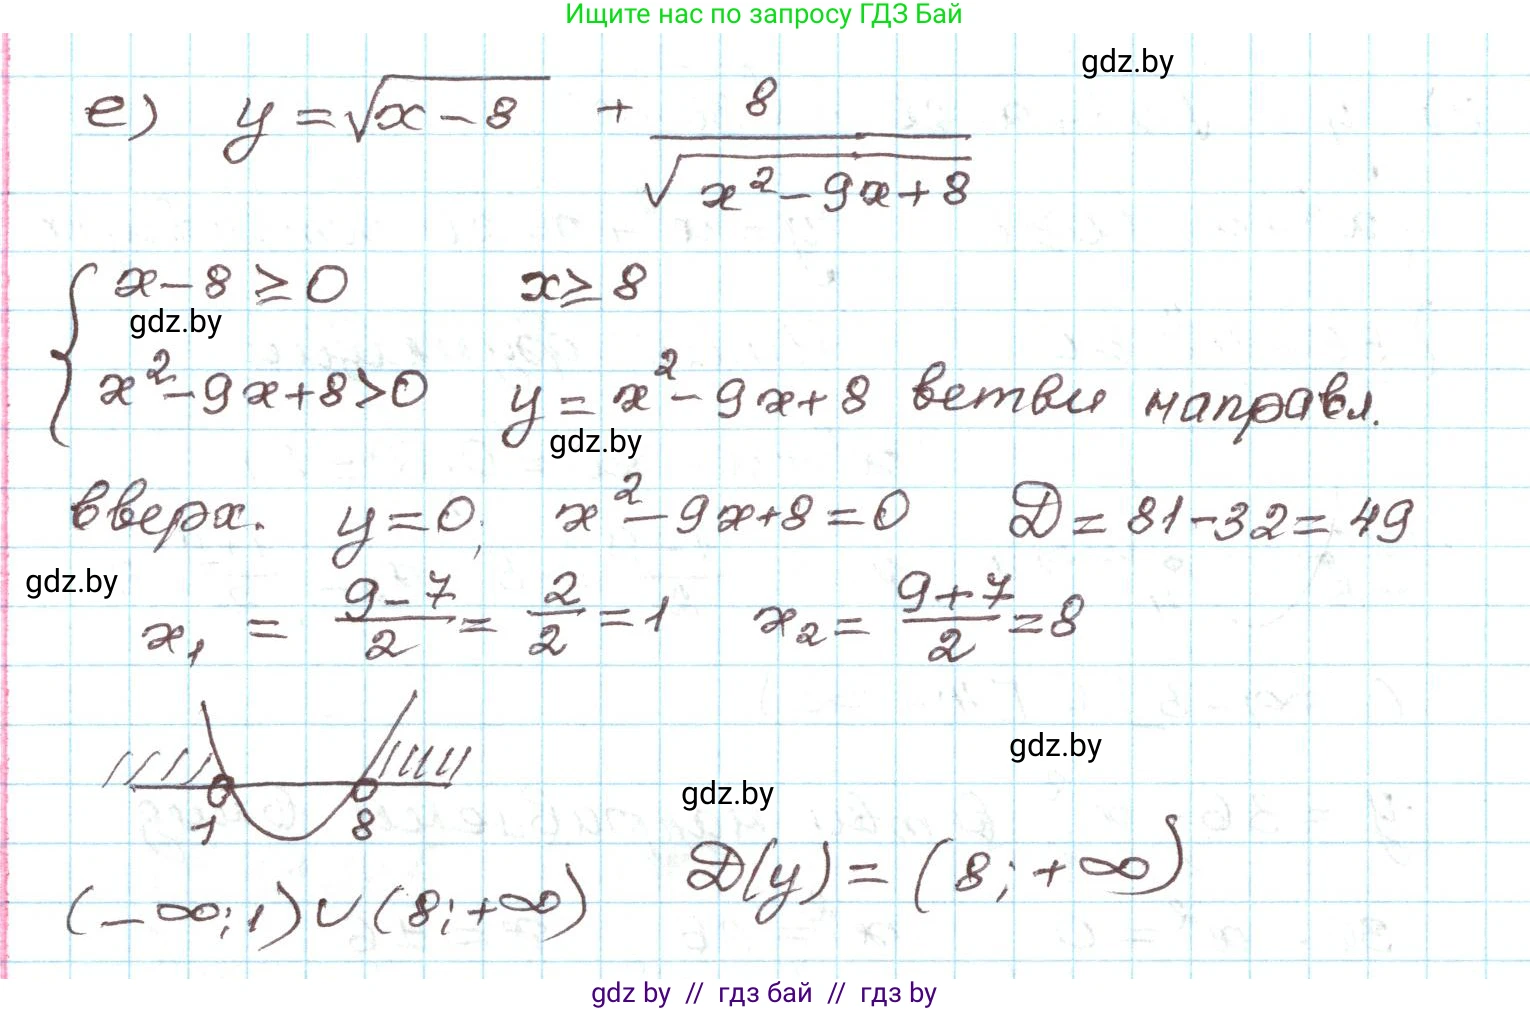 Ищите нас по запросу ГДЗ Бай
gdz.by
е) y = √(x – 8) + 8 / √(x² – 9x + 8)
{ x – 8 ≥ 0 x ≥ 8
gdz.by
x² – 9x + 8 > 0 y = x² – 9x + 8 ветви направл.
gdz.by
вверх. y = 0; x² – 9x + 8 = 0 D = 81 – 32 = 49
gdz.by
x₁ = (9 – 7)/2 = 2/2 = 1 x₂ = (9 + 7)/2 = 8
gdz.by
gdz.by
1 8
(– ∞; 1) ∪ (8; + ∞) D(y) = (8; + ∞)
gdz by // гдз бай // гдз by